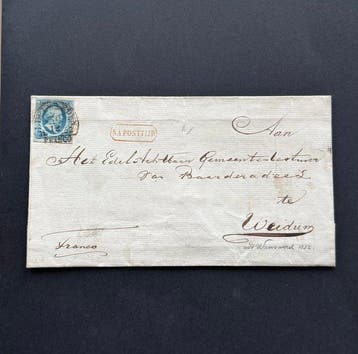 NA POSTTIJD
Aan
Het Edel Achtbaar Gemeentebestuur
van Baarderadeel
te
Weidum
Franco
1852